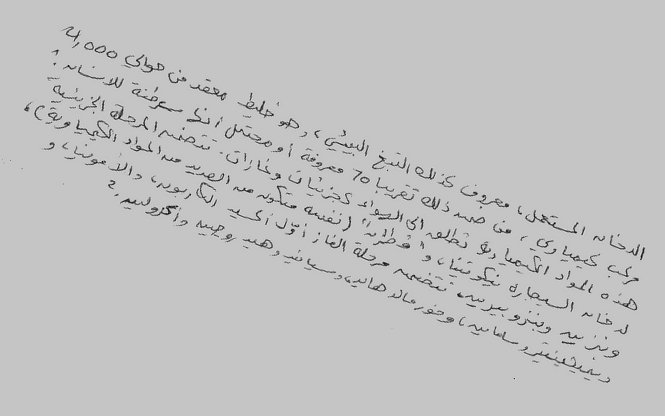 الدخان المستعمل، معروف كذلك التبغ البيئي، هو خليط معقد من حوالي 4,000
مركب كيمياوي، من ضمن ذلك تقريبا 70 معروفة او محتمل أنها مسرطنة للانسان.
هذه المواد الكيمياوية تطلق الى الهواء كجزيئات وغازات. تتضمن المرحلة الجزيئية
لدخان السيجارة نيكوتينا، و"قطران" (نفسه متكون من العديد من المواد الكيمياوية)،
وبنزين وبنزوبيرين. تتضمن مرحلة الغاز أول أكسيد الكاربون، والأمونيا، و
وفورمالدهايد، وسيانيد وهيدروجين وأكرولين.